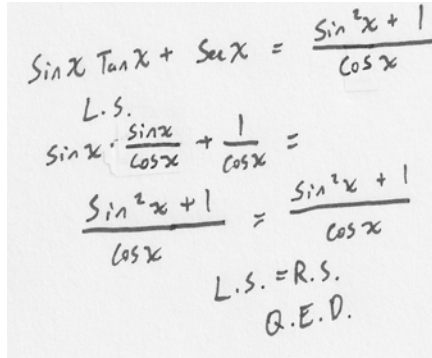 Sinx Tanx + Secx = Sin²x + 1 / Cosx
L.S.
Sinx · Sinx/Cosx + 1/Cosx =
Sin²x + 1 / Cosx = Sin²x + 1 / Cosx
L.S. = R.S.
Q.E.D.